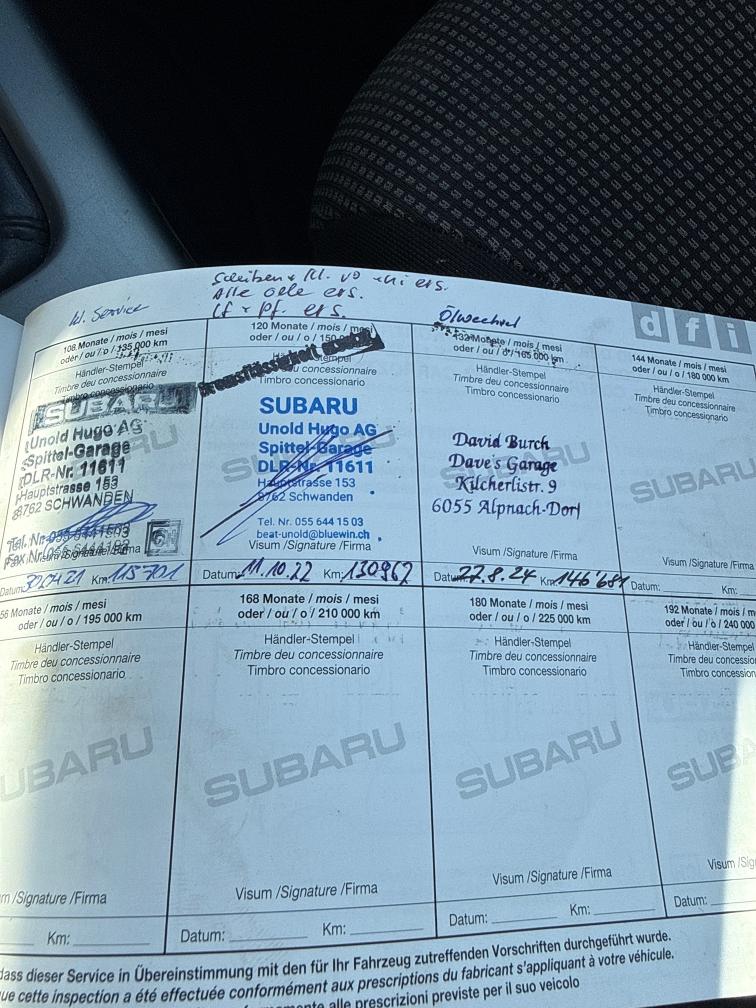 Scheiben + Kl. vo + hi ers.
Alle öle ers.
Lf + Pf. ers.
kl. Service
Ölwechsel
d f i
108 Monate / mois / mesi
oder / ou / o / 135 000 km
Händler-Stempel
Timbre du concessionnaire
Timbro concessionario
SUBARU
Unold Hugo AG
Spittel-Garage
DLR-Nr. 11611
Hauptstrasse 153
8762 SCHWANDEN
Tel. Nr.
Fax Nr.
Visum/Signature/Firma
Datum: 30.04.21 Km: 115'701
120 Monate / mois / mesi
oder / ou / o / 150
Bremsflüssigkeit
Timbre du concessionnaire
Timbro concessionario
SUBARU
Unold Hugo AG
Spittel-Garage
DLR-Nr. 11611
Hauptstrasse 153
8762 Schwanden
Tel. Nr. 055 644 15 03
beat-unold@bluewin.ch
Visum /Signature /Firma
Datum: 11.10.22 Km: 130962
132 Monate / mois / mesi
oder / ou / o / 165 000 km
Händler-Stempel
Timbre du concessionnaire
Timbro concessionario
SUBARU
David Burch
Dave's Garage
Kilcherlistr. 9
6055 Alpnach-Dorf
Visum /Signature /Firma
Datum: 22.8.24 Km: 146'681
144 Monate / mois / mesi
oder / ou / o / 180 000 km
Händler-Stempel
Timbre du concessionnaire
Timbro concessionario
SUBARU
Visum /Signature /Firma
Datum: Km:
56 Monate / mois / mesi
oder / ou / o / 195 000 km
Händler-Stempel
Timbre du concessionnaire
Timbro concessionario
SUBARU
m /Signature /Firma
Km:
168 Monate / mois / mesi
oder / ou / o / 210 000 km
Händler-Stempel
Timbre du concessionnaire
Timbro concessionario
SUBARU
Visum /Signature /Firma
Datum: Km:
180 Monate / mois / mesi
oder / ou / o / 225 000 km
Händler-Stempel
Timbre du concessionnaire
Timbro concessionario
SUBARU
Visum /Signature /Firma
Datum: Km:
192 Monate / mois / m
oder / ou / o / 240 000
Händler-Stempel
Timbre du concession
Timbro concessionar
SUBA
Visum /Si
Datum:
dass dieser Service in Übereinstimmung mit den für Ihr Fahrzeug zutreffenden Vorschriften durchgeführt wurde.
que cette inspection a été effectuée conformément aux prescriptions du fabricant s'appliquant à votre véhicule.
alle prescrizioni previste per il suo veicolo